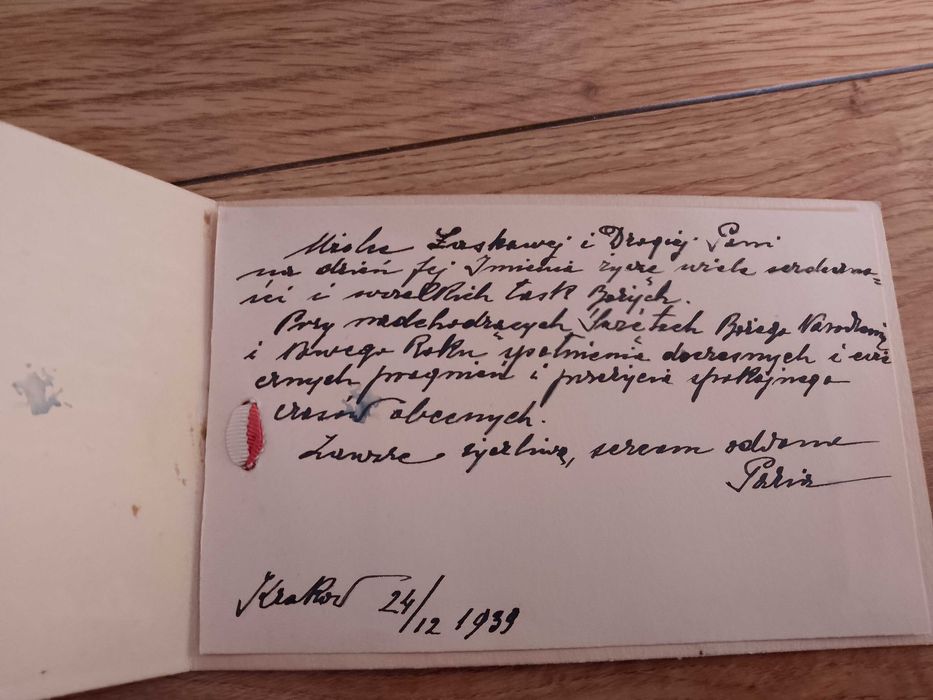 Łaskawej i Drogiej Pani
na dzień Jej Imienia życzę wiele serdeczno=
ści i wszelkich łask Bożych.
Przy nadchodzących Świętach Bożego Narodzenia
i Nowego Roku spełnienia doczesnych i wie
cznych pragnień i przeżycia spokojnego
czasów obecnych.
Zawsze życzliwa, sercem oddana
Kraków 24/12 1939